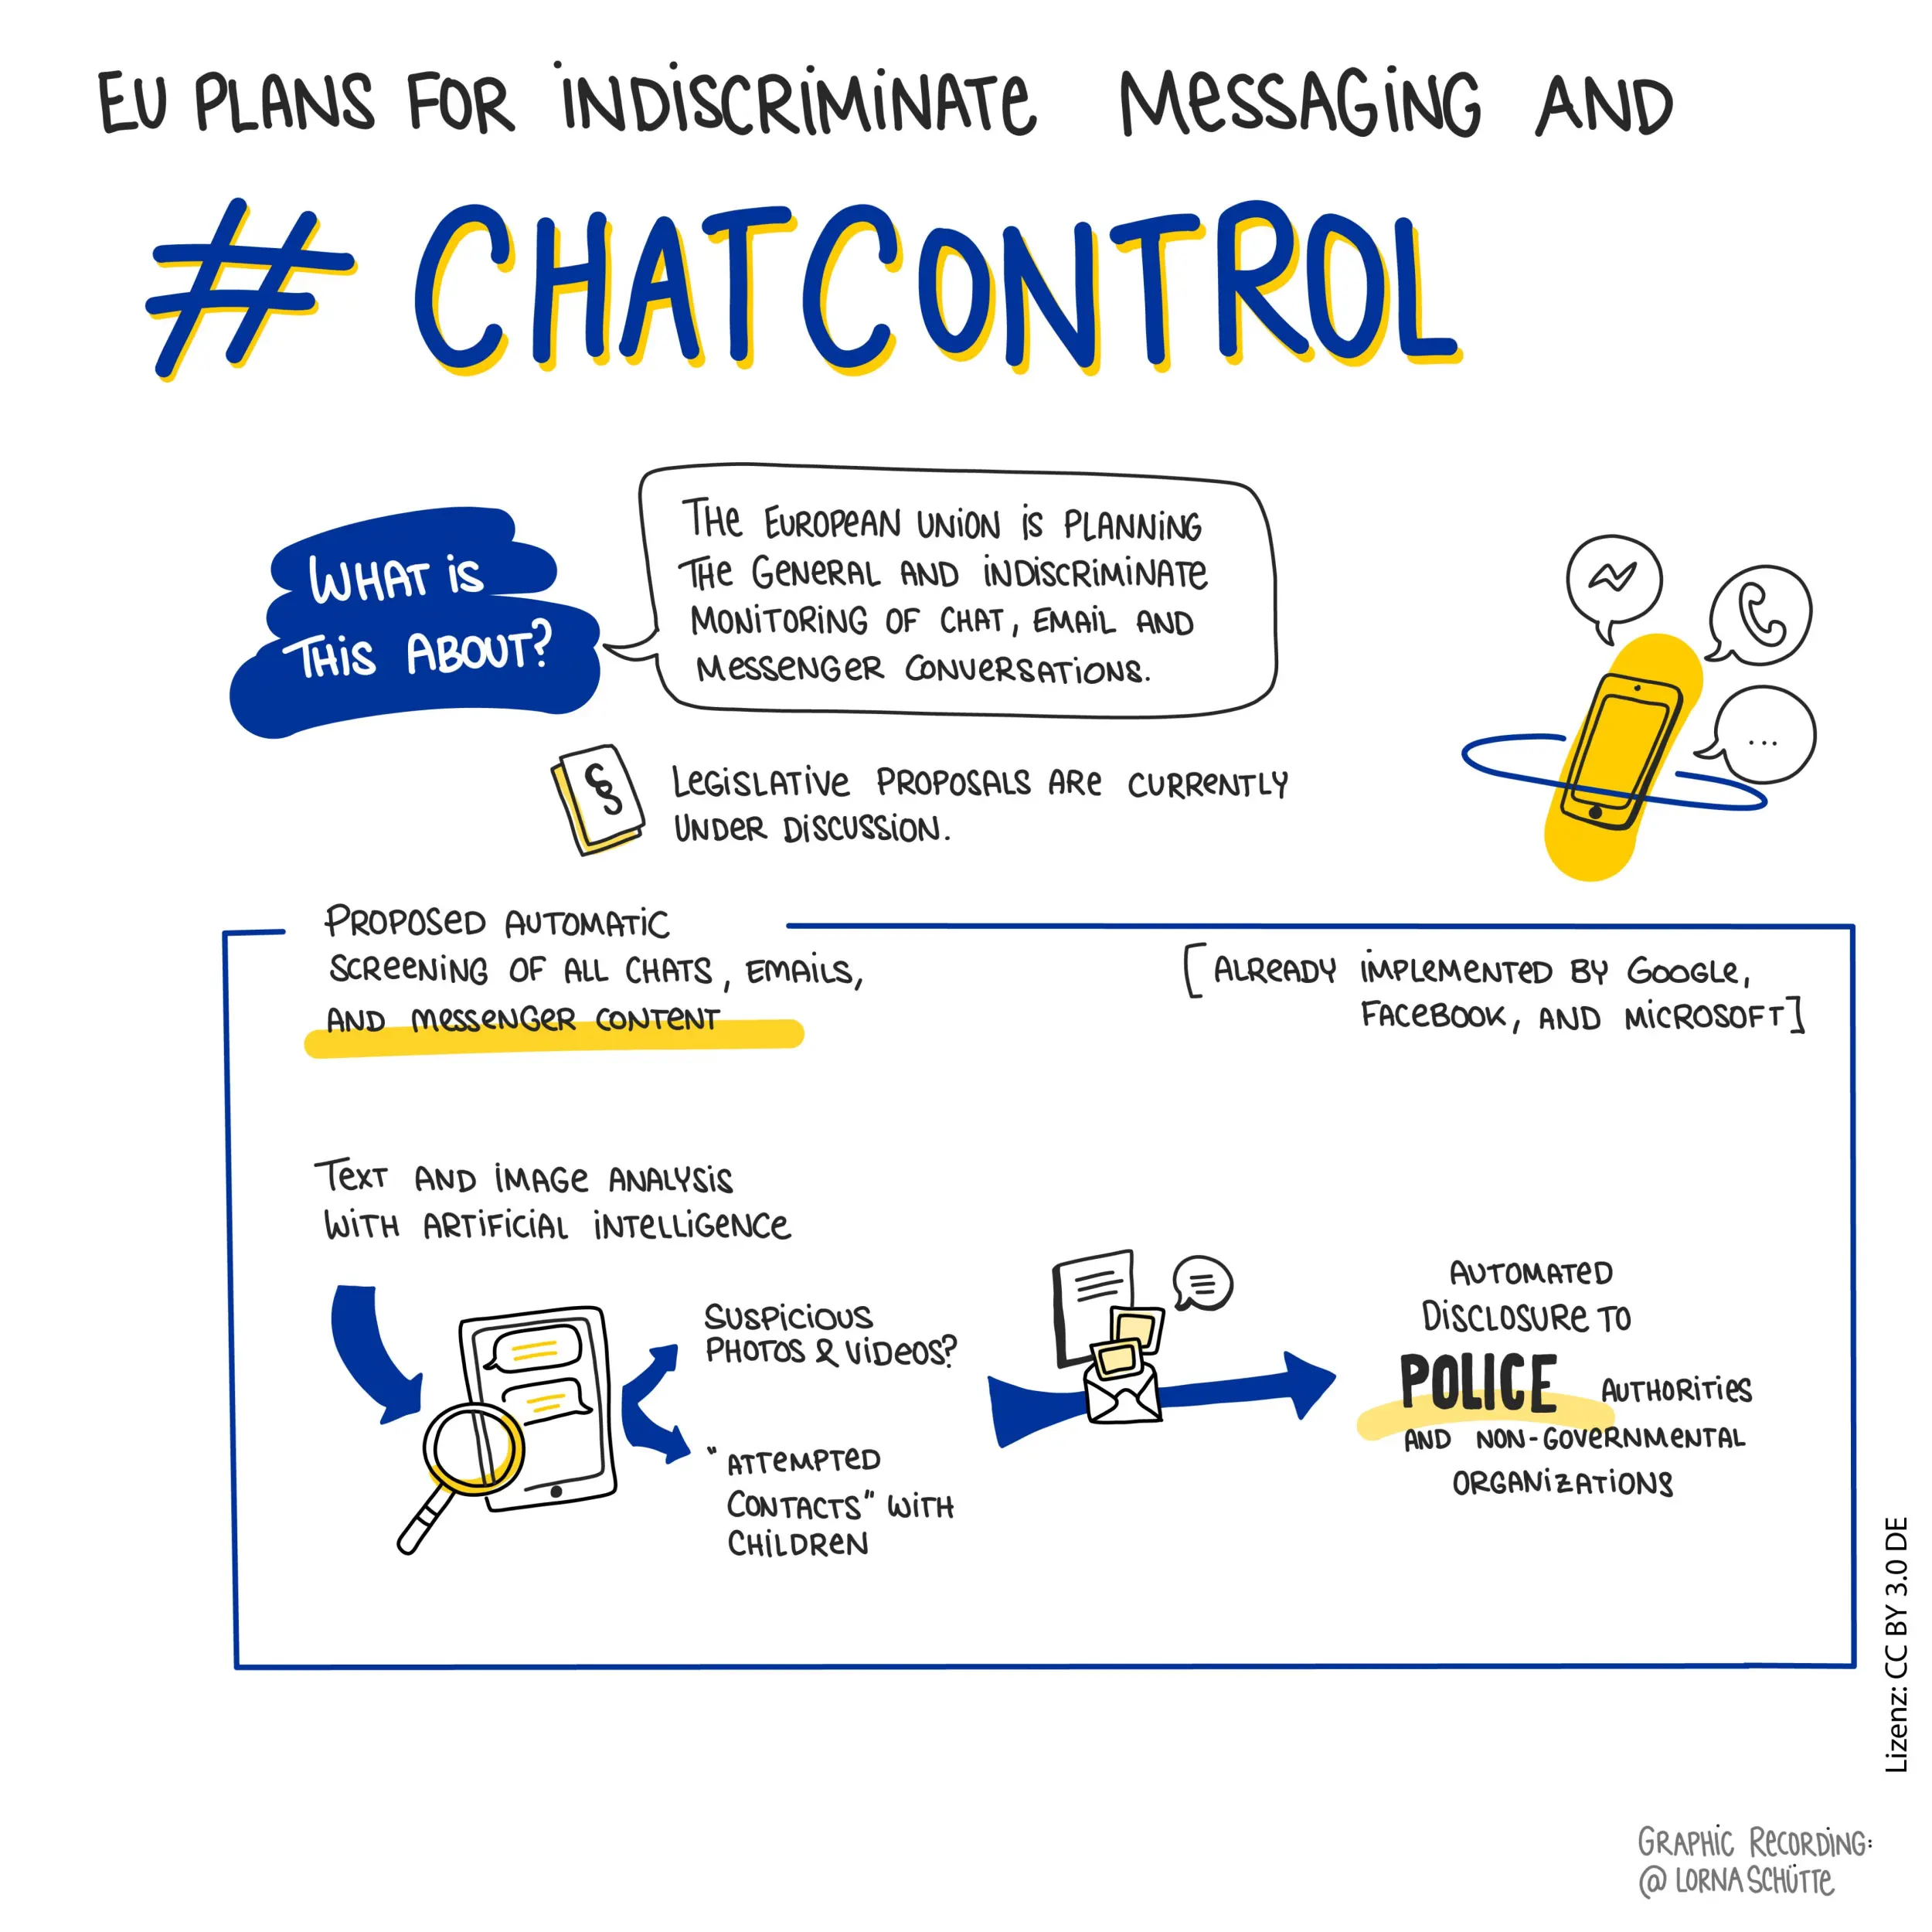 EU PLANS FOR INDISCRIMINATE MESSAGING AND
# CHATCONTROL
WHAT IS
THIS ABOUT?
THE EUROPEAN UNION IS PLANNING
THE GENERAL AND INDISCRIMINATE
MONITORING OF CHAT, EMAIL AND
MESSENGER CONVERSATIONS.
§
LEGISLATIVE PROPOSALS ARE CURRENTLY
UNDER DISCUSSION.
...
PROPOSED AUTOMATIC
SCREENING OF ALL CHATS, EMAILS,
AND MESSENGER CONTENT
[ALREADY IMPLEMENTED BY GOOGLE,
FACEBOOK, AND MICROSOFT]
TEXT AND IMAGE ANALYSIS
WITH ARTIFICIAL INTELLIGENCE
SUSPICIOUS
PHOTOS & VIDEOS?
"ATTEMPTED
CONTACTS" WITH
CHILDREN
AUTOMATED
DISCLOSURE TO
POLICE AUTHORITIES
AND NON-GOVERNMENTAL
ORGANIZATIONS
Lizenz: CC BY 3.0 DE
GRAPHIC RECORDING:
@ LORNA SCHÜTTE